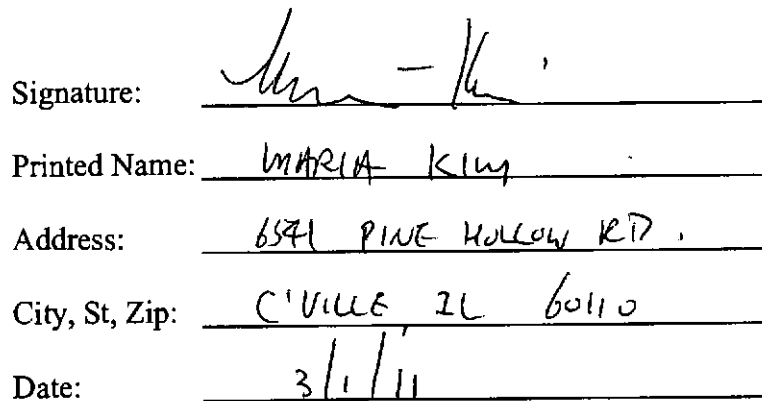 Signature:
Printed Name: MARIA KIM
Address: 6541 PINE HOLLOW RD.
City, St, Zip: C'VILLE IL 60110
Date: 3/1/11